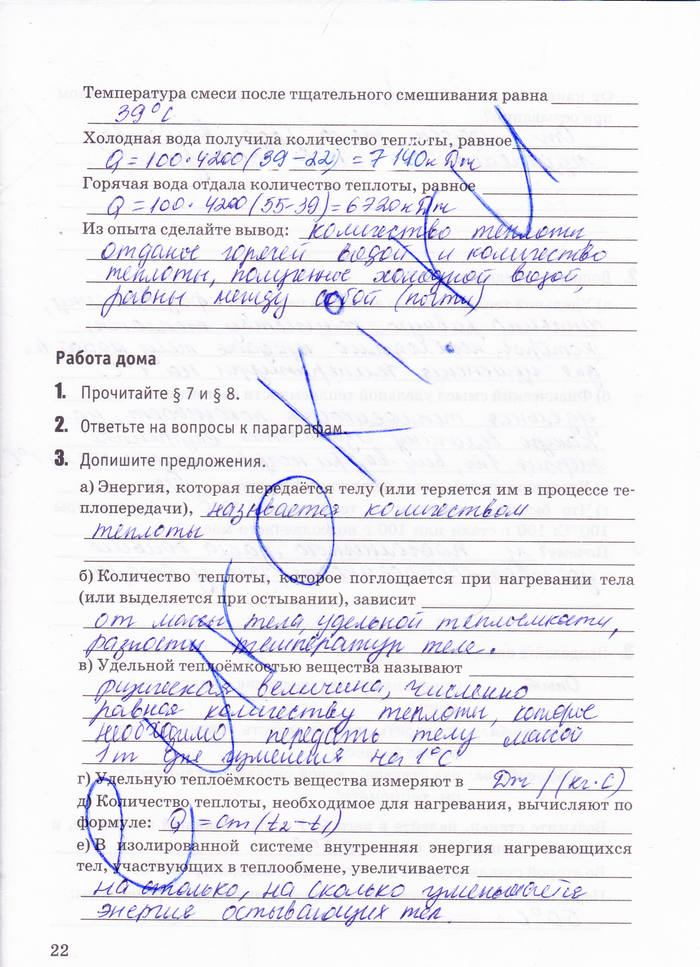 Температура смеси после тщательного смешивания равна
39°C
Холодная вода получила количество теплоты, равное
Q = 100·4200(39-22) = 7140к Дж
Горячая вода отдала количество теплоты, равное
Q = 100·4200(55-39) = 6720кДж
Из опыта сделайте вывод: количество теплоты
отданое горячей водой и количество
теплоты, полученное холодной водой,
равны между собой (почти)
Работа дома
1. Прочитайте § 7 и § 8.
2. Ответьте на вопросы к параграфам.
3. Допишите предложения.
а) Энергия, которая передаётся телу (или теряется им в процессе те-
плопередачи), называется количеством
теплоты
б) Количество теплоты, которое поглощается при нагревании тела
(или выделяется при остывании), зависит
от массы тела, удельной теплоемкости,
разности температур теле.
в) Удельной теплоёмкостью вещества называют
физическая величина, численно
равная количеству теплоты, которое
необходимо передать телу массой
1 т для изменения на 1°C
г) Удельную теплоёмкость вещества измеряют в Дж / (кг·С)
д) Количество теплоты, необходимое для нагревания, вычисляют по
формуле: Q = cm(t2-t1)
е) В изолированной системе внутренняя энергия нагревающихся
тел, участвующих в теплообмене, увеличивается
на столько, на сколько уменьшается
энергия остывающих тел.
22